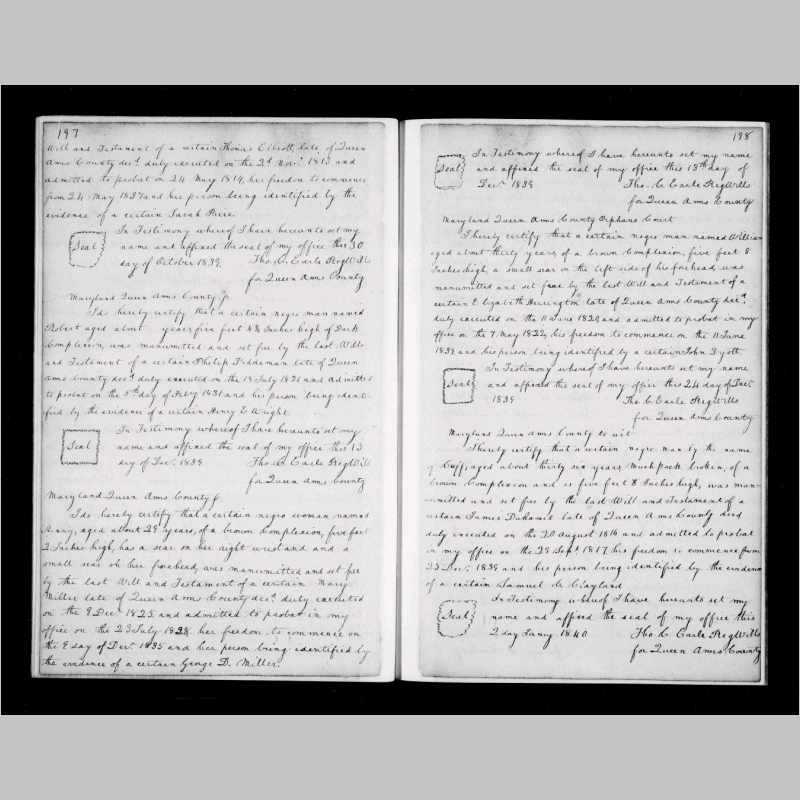 197
Will and Testament of a certain Thomas Elliott, late, of Queen
Anns County decd. duly executed on the 2d. Novr. 1813 and
admitted to probat on 24 May 1814, his freedom to commence
from 24 May 1837 and his person being identified by the
evidence of a certain Sarah
In Testimony whereof I have hereunto set my
Seal
name and affixed the seal of my office this 30
day of October 1839. Tho. C. Earle Reg Wills
for Queen Anns County
Maryland Queen Anns County
I do hereby certify that a certain negro man named
Robert aged about years five feet inches high of Dark
Complexion, was manumitted and set free by the last Will
and Testament of a certain Philip Fiddeman late of Queen
Anns County decd. duly executed on the 18 July 1821 and Admitted
to probat on the day of Feby 1831 and his person being ident-
ified by the evidence of a certain Henry E Wright.
In Testimony whereof I have hereunto set my
Seal
name and affixed the seal of my office this 13
day of Dec. 1839 Tho C Earle Reg Wills
for Queen Anns County
Maryland Queen Anns County
I do hereby certify that a certain negro woman named
Anny, aged about 28 years, of a brown complexion, five feet
2 Inches high, has a scar on her right wrist and and a
small scar ob her forehead, was manumitted and set free
by the last Will and Testament of a certain Mary
Miller late of Queen Anns County decd. duly executed
on the 9 Dec. 1825 and admitted to probat in my
office on the 23 July 1828. her freedom to commence on
the 8 day of Decr. 1835 and her person being identified by
the evidence of a certain George D. Miller.
198
In Testimony whereof I have hereunto set my name
Seal
and affixed the seal of my office this 13th day of
Decr. 1839 Tho. C Earle Reg Wills
for Queen Anns County
Maryland Queen Anns County Orphans Court
I hereby certify that a certain negro man named William
aged about thirty years of a brown Complexion, five feet 8
Inches high, a small scar on the left side of his forehead was
manumitted and set free by the last Will and Testament of a
certain Elizabeth Harrington late of Queen Anns County decd.
duly executed on the 11 June 1820 and admitted to probat in my
office on the 7. May 1822, his freedom to commence on the 11 June
1838 and his person being identified by a certain John Dyott
In Testimony whereof I have hereunto set my name
Seal
and affixed the seal of my office this 24 day of Decr
1839 Tho. C Earle Reg Wills
for Queen Anns County
Maryland Queen Anns County to wit.
I hereby certify that a certain negro man by the name
of Cuff, aged about thirty six years Much pock broken, of a
brown Complexion and is five feet 8 Inches high, was man-
umitted and set free by the last Will and Testament of a
certain James Duhamel late of Queen Anns County decd
duly executed on the 20 August 1816 and admitted to probat
in my office on the 23 Sept 1817 his freedom to commence from
25 Dec. 1839 and his person being identified by the evidence
of a certain Samuel C. Clayland
In Testimony whereof I have hereunto set my
Seal
name and affixed the seal of my office this
2 day Janny 1840 Tho C Earle Reg Wills
for Queen Anns County